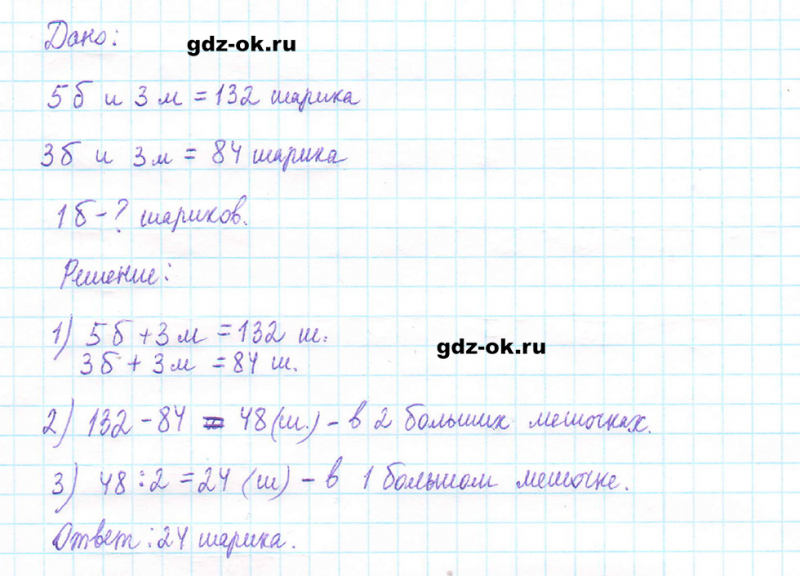 Дано:
gdz-ok.ru
5б и 3м = 132 шарика
3б и 3м = 84 шарика
1б - ? шариков.
Решение:
1) 5б + 3м = 132 ш.
3б + 3м = 84 ш.
gdz-ok.ru
2) 132 - 84 = 48 (ш.) - в 2 больших мешочках.
3) 48 : 2 = 24 (ш) - в 1 большом мешочке.
Ответ: 24 шарика.